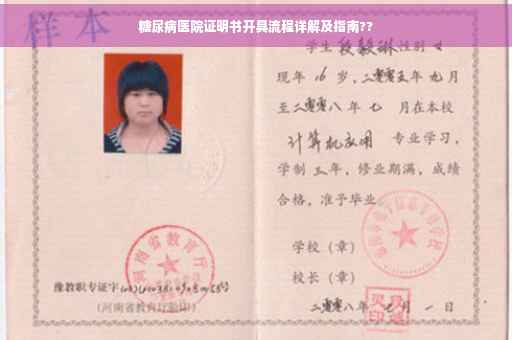 糖尿病医院证明书开具流程详解及指南??
样本
学生段毅琳性别女
现年16岁，二零零五年九月
至二零零八年七月在本校
计算机应用 专业学习，
学制三年，修业期满，成绩
合格，准予毕业
学校（章）
校长（章）
二零零八年 月一日
河南省教育厅
豫教职专证字
（河南省教育厅验印）